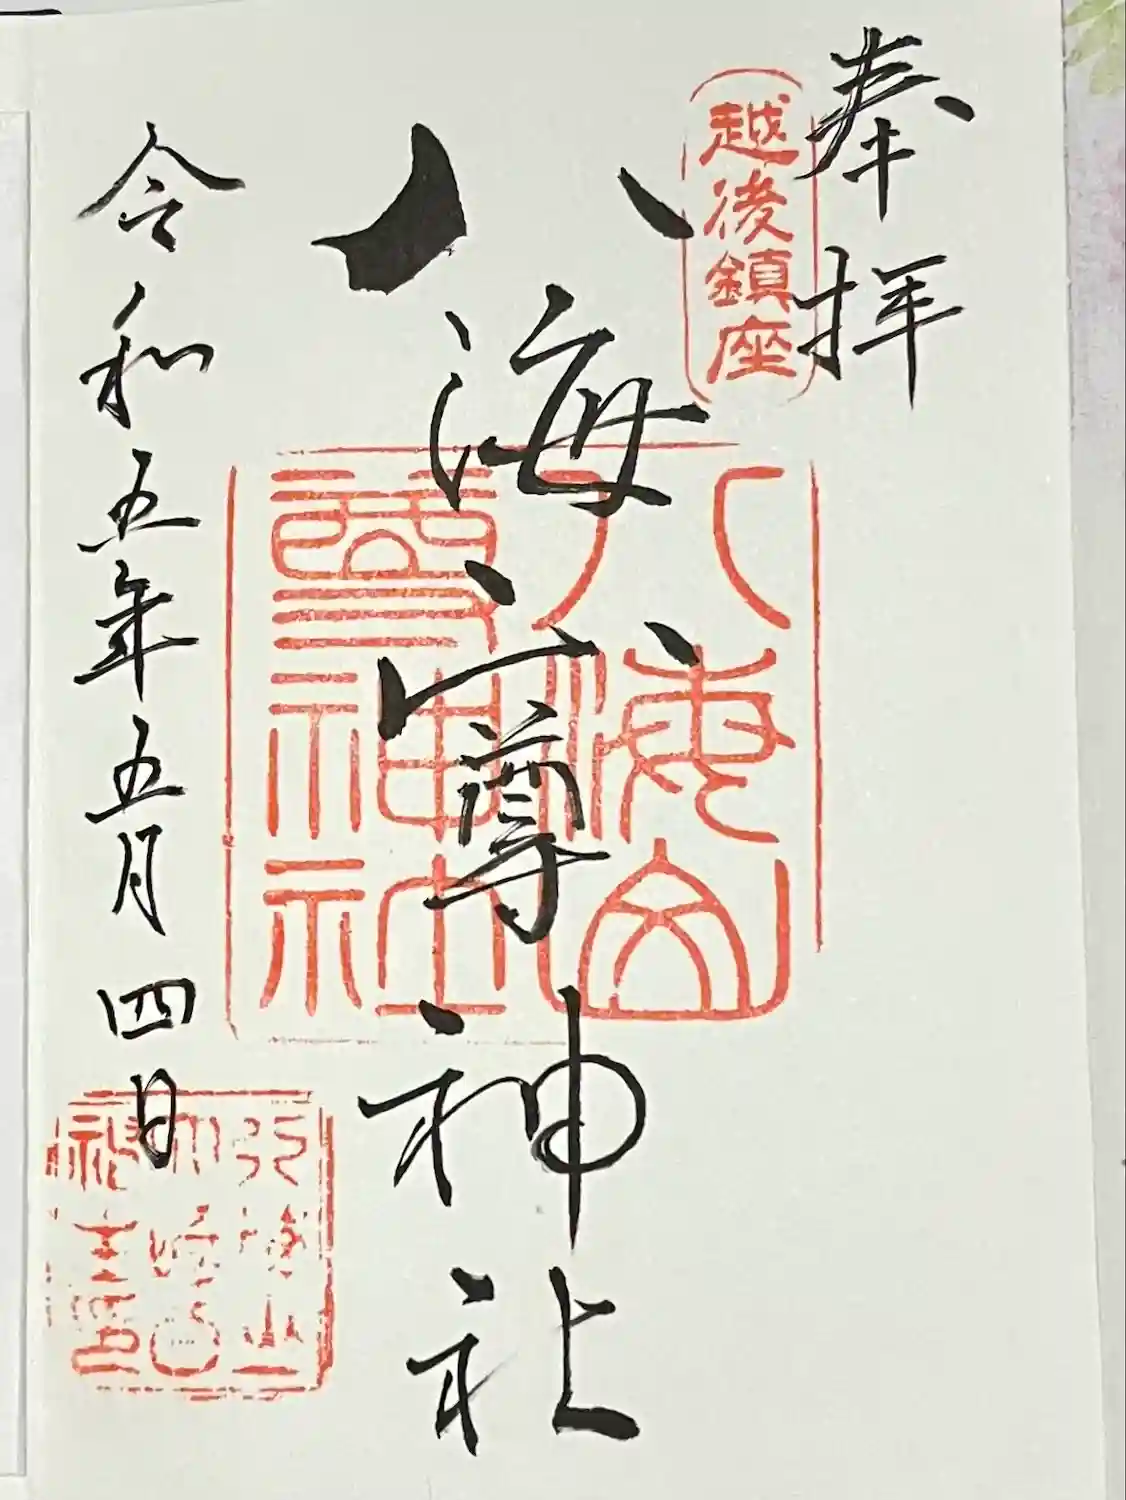 奉拝
越後鎮座
八海山尊神社
八海山
尊神社
令和五年五月四日